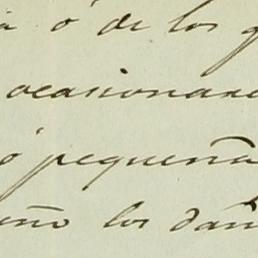 ó de los
ocasionar
ó pequeña
los dañ